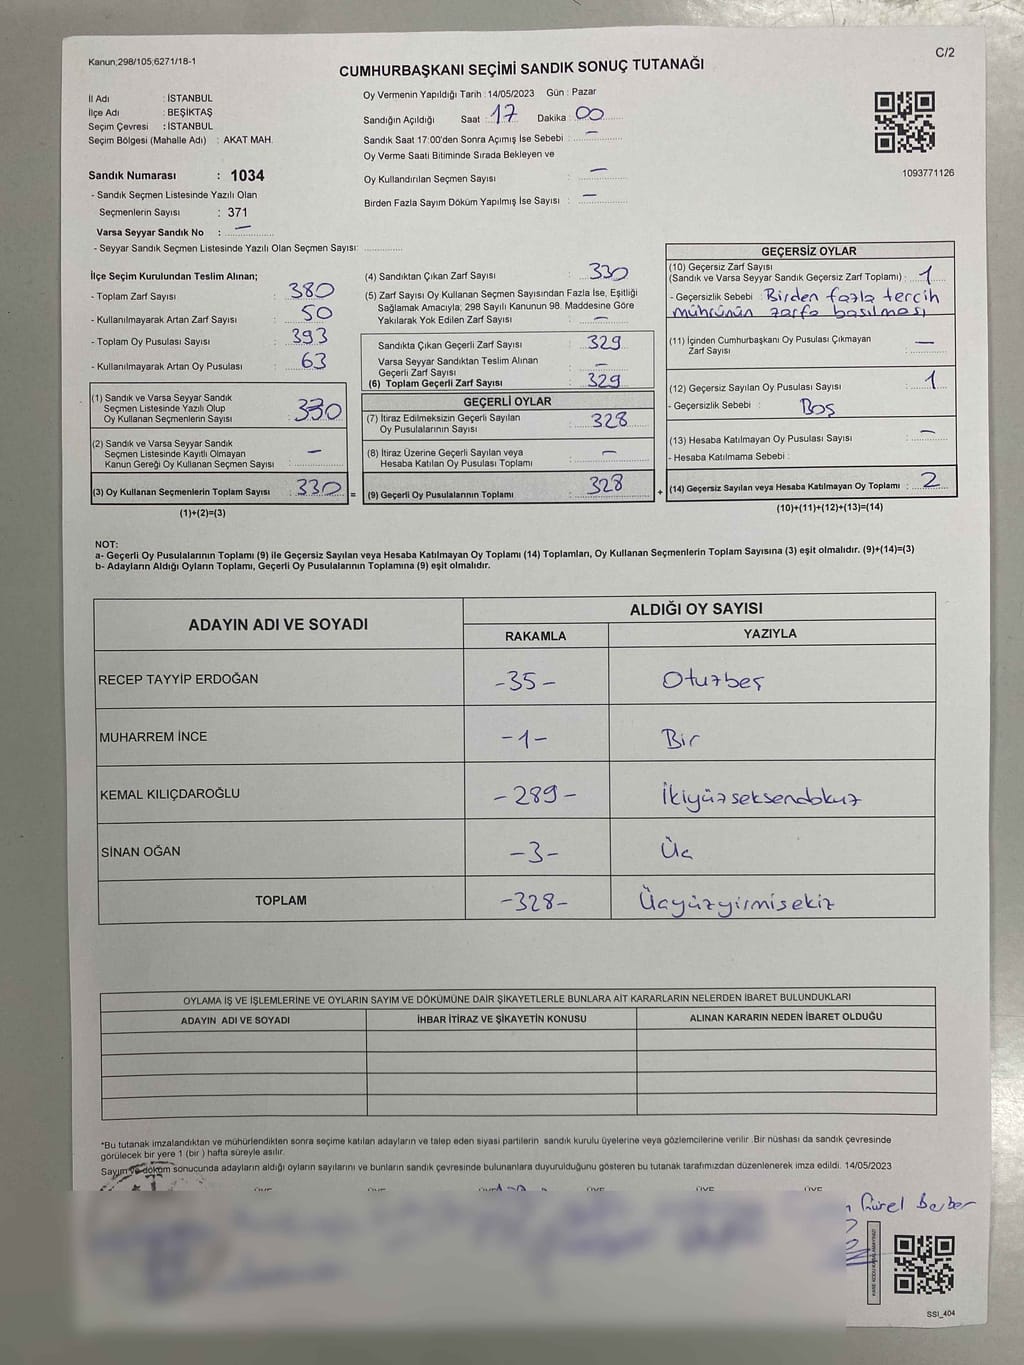 Kanun,298/105;6271/18-1
C/2
CUMHURBAŞKANI SEÇİMİ SANDIK SONUÇ TUTANAĞI
İl Adı : İSTANBUL
İlçe Adı : BEŞİKTAŞ
Seçim Çevresi : İSTANBUL
Seçim Bölgesi (Mahalle Adı) : AKAT MAH.
Oy Vermenin Yapıldığı Tarih : 14/05/2023 Gün : Pazar
Sandığın Açıldığı Saat : 17 Dakika : 00
Sandık Saat 17:00'den Sonra Açımış İse Sebebi : —
Oy Verme Saati Bitiminde Sırada Bekleyen ve
Oy Kullandırılan Seçmen Sayısı : —
Birden Fazla Sayım Döküm Yapılmış İse Sayısı : —
1093771126
Sandık Numarası : 1034
- Sandık Seçmen Listesinde Yazılı Olan
Seçmenlerin Sayısı : 371
Varsa Seyyar Sandık No : —
- Seyyar Sandık Seçmen Listesinde Yazılı Olan Seçmen Sayısı:
İlçe Seçim Kurulundan Teslim Alınan;
- Toplam Zarf Sayısı : 380
- Kullanılmayarak Artan Zarf Sayısı : 50
- Toplam Oy Pusulası Sayısı : 393
- Kullanılmayarak Artan Oy Pusulası : 63
(1) Sandık ve Varsa Seyyar Sandık
Seçmen Listesinde Yazılı Olup
Oy Kullanan Seçmenlerin Sayısı : 330
(2) Sandık ve Varsa Seyyar Sandık
Seçmen Listesinde Kayıtlı Olmayan
Kanun Gereği Oy Kullanan Seçmen Sayısı : —
(3) Oy Kullanan Seçmenlerin Toplam Sayısı : 330 =
(1)+(2)=(3)
(4) Sandıktan Çıkan Zarf Sayısı : 330
(5) Zarf Sayısı Oy Kullanan Seçmen Sayısından Fazla İse, Eşitliği
Sağlamak Amacıyla; 298 Sayılı Kanunun 98. Maddesine Göre
Yakılarak Yok Edilen Zarf Sayısı : —
Sandıkta Çıkan Geçerli Zarf Sayısı : 329
Varsa Seyyar Sandıktan Teslim Alınan
Geçerli Zarf Sayısı : —
(6) Toplam Geçerli Zarf Sayısı : 329
GEÇERLİ OYLAR
(7) İtiraz Edilmeksizin Geçerli Sayılan
Oy Pusulalarının Sayısı : 328
(8) İtiraz Üzerine Geçerli Sayılan veya
Hesaba Katılan Oy Pusulası Toplamı : —
(9) Geçerli Oy Pusulalarının Toplamı : 328 +
GEÇERSİZ OYLAR
(10) Geçersiz Zarf Sayısı
(Sandık ve Varsa Seyyar Sandık Geçersiz Zarf Toplamı) : 1
- Geçersizlik Sebebi : Birden fazla tercih
mührünün zarfa basılması
(11) İçinden Cumhurbaşkanı Oy Pusulası Çıkmayan
Zarf Sayısı : —
(12) Geçersiz Sayılan Oy Pusulası Sayısı : 1
- Geçersizlik Sebebi : Boş
(13) Hesaba Katılmayan Oy Pusulası Sayısı : —
- Hesaba Katılmama Sebebi :
(14) Geçersiz Sayılan veya Hesaba Katılmayan Oy Toplamı : 2
(10)+(11)+(12)+(13)=(14)
NOT:
a- Geçerli Oy Pusulalarının Toplamı (9) ile Geçersiz Sayılan veya Hesaba Katılmayan Oy Toplamı (14) Toplamları, Oy Kullanan Seçmenlerin Toplam Sayısına (3) eşit olmalıdır. (9)+(14)=(3)
b- Adayların Aldığı Oyların Toplamı, Geçerli Oy Pusulalarının Toplamına (9) eşit olmalıdır.
ADAYIN ADI VE SOYADI
ALDIĞI OY SAYISI
RAKAMLA YAZIYLA
RECEP TAYYİP ERDOĞAN -35- Otuzbeş
MUHARREM İNCE -1- Bir
KEMAL KILIÇDAROĞLU -289- İkiyüzseksendokuz
SİNAN OĞAN -3- Üç
TOPLAM -328- Üçyüzyirmisekiz
OYLAMA İŞ VE İŞLEMLERİNE VE OYLARIN SAYIM VE DÖKÜMÜNE DAİR ŞİKAYETLERLE BUNLARA AİT KARARLARIN NELERDEN İBARET BULUNDUKLARI
ADAYIN ADI VE SOYADI İHBAR İTİRAZ VE ŞİKAYETİN KONUSU ALINAN KARARIN NEDEN İBARET OLDUĞU
*Bu tutanak imzalandıktan ve mühürlendikten sonra seçime katılan adayların ve talep eden siyasi partilerin sandık kurulu üyelerine veya gözlemcilerine verilir .Bir nüshası da sandık çevresinde
görülecek bir yere 1 (bir ) hafta süreyle asılır.
Sayım ve döküm sonucunda adayların aldığı oyların sayılarını ve bunların sandık çevresinde bulunanlara duyurulduğunu gösteren bu tutanak tarafımızdan düzenlenerek imza edildi. 14/05/2023
ÜYE ÜYE ÜYE ÜYE ÜYE ÜYE
Gürel Berber
SSI_404